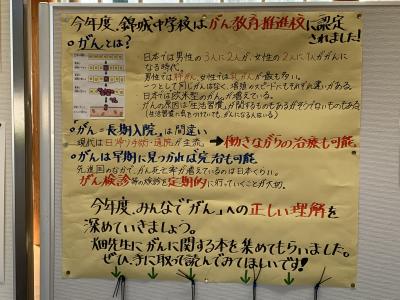 今年度、錦城中学校はがん教育推進校に認定
されました!
がんとは?
日本では男性の3人に2人が、女性の2人に1人ががんに
なる時代。
男性では肺がん、女性では乳がんが最も多い。
一つとして同じがんはなく、増殖のスピードにもそれぞれ違いがある。
日本では欧米型のがんが増えている。
がんの原因は「生活習慣」が関するものもあるがそうでないものもある
(生活習慣に気をつけていても、がんになる人はいる)
「がん=長期入院」は間違い
現代は日帰り手術・通院が主流。→働きながらの治療も可能
がんは早期に見つかれば完治も可能
先進国のなかで、がん死亡率が増えているのは日本くらい。
がん検診等の検診を定期的に行っていくことが大切。
今年度、みんなで「がん」への正しい理解を
深めていきましょう。
畑先生にがんに関する本を集めてもらいました。
ぜひ、手に取って読んでみてほしいです!